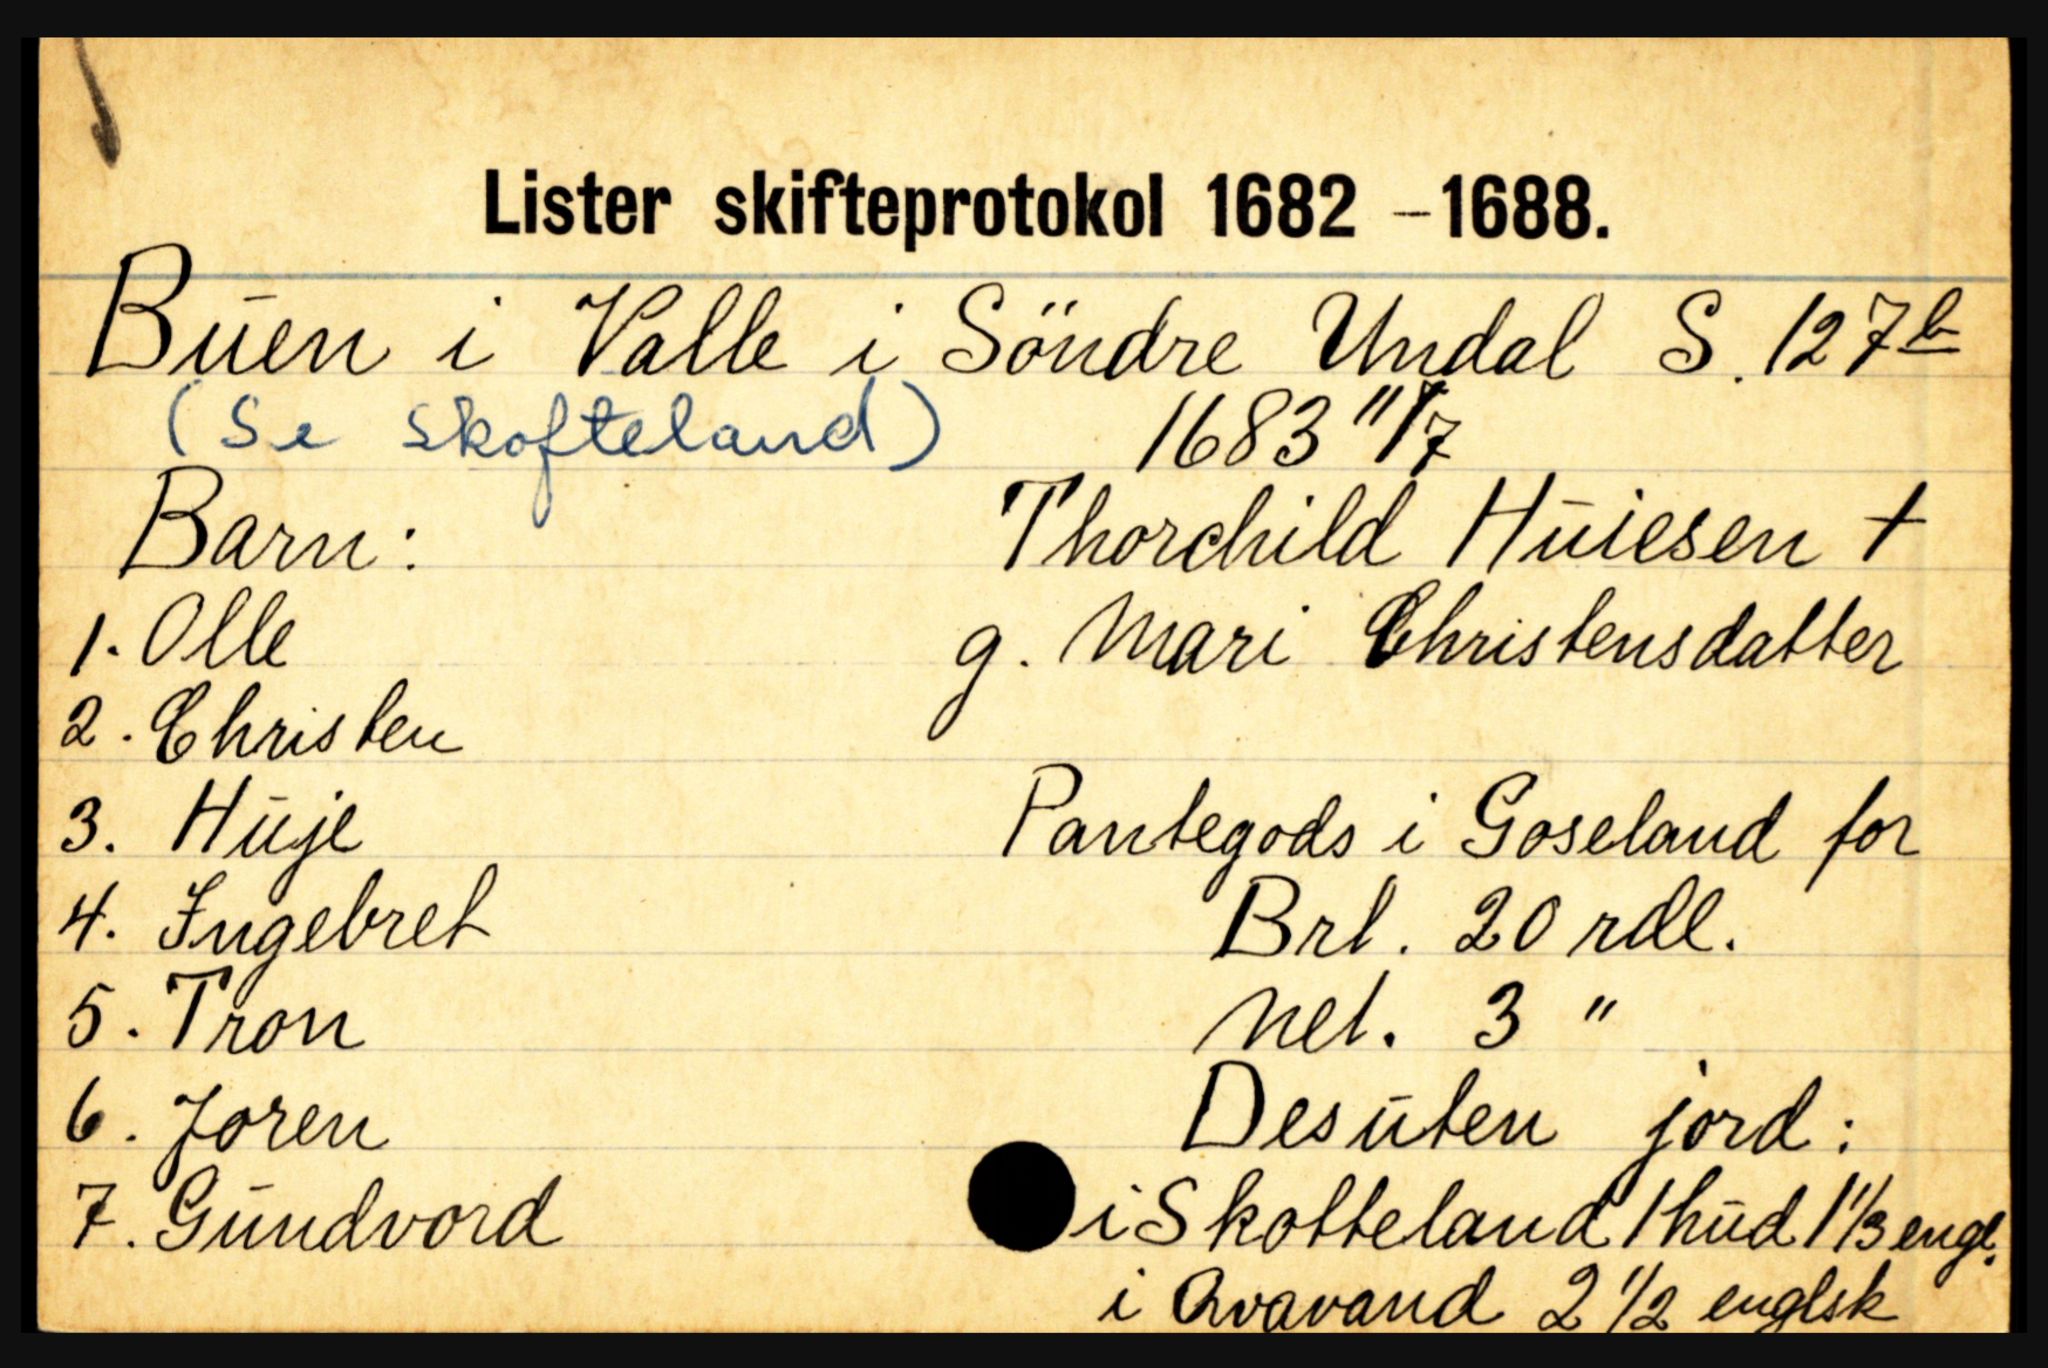 Lister skifteprotokol 1682 - 1688.
Buen i Valle i Söndre Undal S. 127b
(Se Skofteland) 1683 11/7
Barn: Thorchild Huiesen †
1. Olle g. Mari Christensdatter
2. Christen
3. Huje Pantegods i Goseland for
4. Ingebret Brt. 20 rdl.
5. Tron Net. 3 "
6. Joren Desuten jord:
7. Gundvord i Skotteland 1 hud 1 1/3 engl.
i Qvavand 2 1/2 englsk